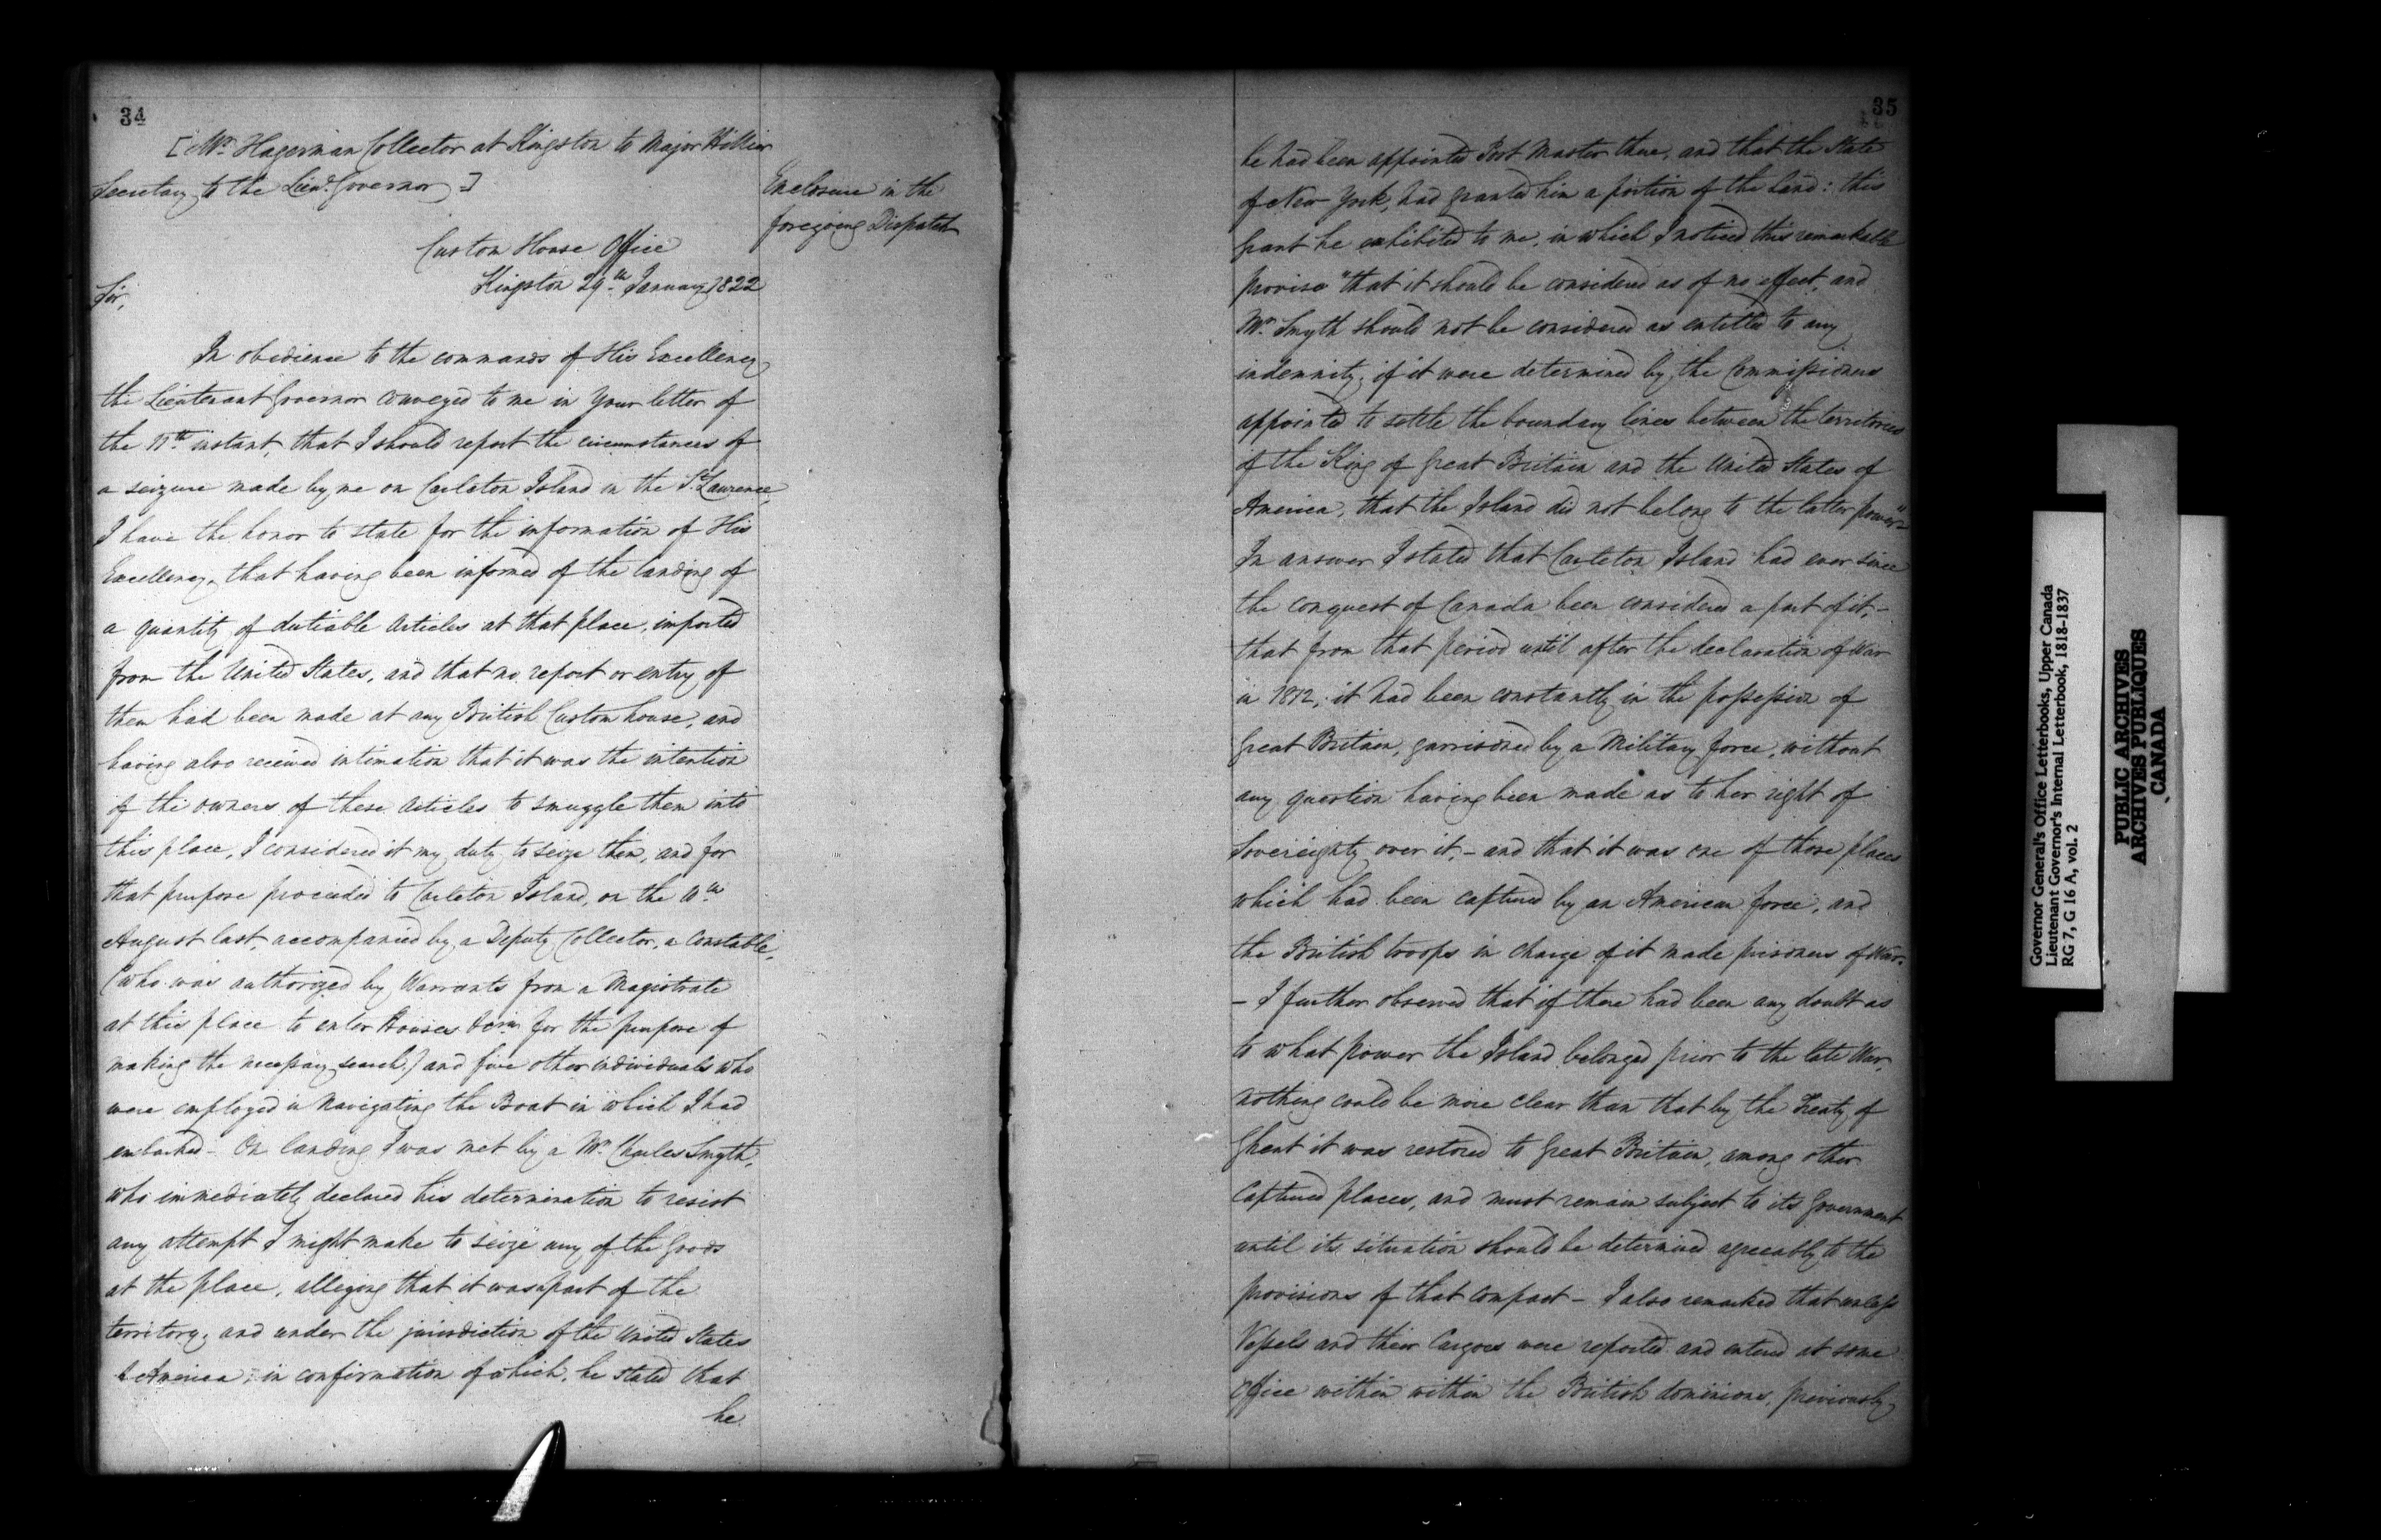 34
[Mr. Hagerman Collector at Kingston to Major Hillier
Secretary to the Lieut. Governor]
Enclosure in the
foregoing Dispatch
Custom House Office
Kingston 29th January 1822
Sir,
In obedience to the commands of His Excellency
the Lieutenant Governor conveyed to me in Your letter of
the 11th instant, that I should report the circumstances of
a seizure made by me on Carleton Island in the St. Laurence,
I have the honor to state for the information of His
Excellency, that having been informed of the landing of
a quantity of dutiable Articles at that place, imported
from the United States, and that no report or entry of
them had been made at any British Custom house, and
having also received intimation that it was the intention
of the owners of these Articles to smuggle them into
this place, I considered it my duty to seize them, and for
that purpose proceeded to Carleton Island, on the 10th
August last, accompanied by a Deputy Collector, a Constable,
(who was authorized by Warrants from a Magistrate
at this place to enter Houses &c for the purpose of
making the necessary search,) and five other individuals who
were employed in Navigating the Boat in which I had
embarked - On landing I was met by a Mr. Charles Smyth,
who immediately declared his determination to resist
any attempt I might make to seize any of the Goods
at the place, alleging that it was a part of the
territory, and under the jurisdiction of the United States
of America; in confirmation of which, he stated that
he
35
he had been appointed Post Master there, and that the State
of New York, had granted him a portion of the land: this
Grant he exhibited to me, in which I noticed this remarkable
proviso "that it should be considered as of no effect, and
Mr. Smyth should not be considered as entitled to any
indemnity, if it were determined by the Commissioners
appointed to settle the boundary lines between the territories
of the King of Great Britain and the United States of
America, that the Island did not belong to the latter power"-
In answer I stated that Carleton Island had ever since
the conquest of Canada been considered a part of it, -
that from that period until after the declaration of War
in 1812, it had been constantly in the possession of
Great Britain, garrisoned by a Military force, without
any question having been made as to her right of
Sovereignty over it, - and that it was one of those places
which had been captured by an American force, and
the British troops in charge of it made prisoners of War.
- I further observed that if there had been any doubt as
to what power the Island belonged prior to the late War,
nothing could be more clear than that by the Treaty of
Ghent it was restored to Great Britain, among other
Captured places, and must remain subject to its Government
until its situation should be determined agreeably to the
provisions of that Compact - I also remarked that unless
Vessels and their Cargoes were reported and entered at some
Office within within the British dominions, previously
Governor General's Office Letterbooks, Upper Canada
Lieutenant Governor's Internal Letterbook, 1818-1837
RG 7, G 16 A, vol. 2
PUBLIC ARCHIVES
ARCHIVES PUBLIQUES
CANADA